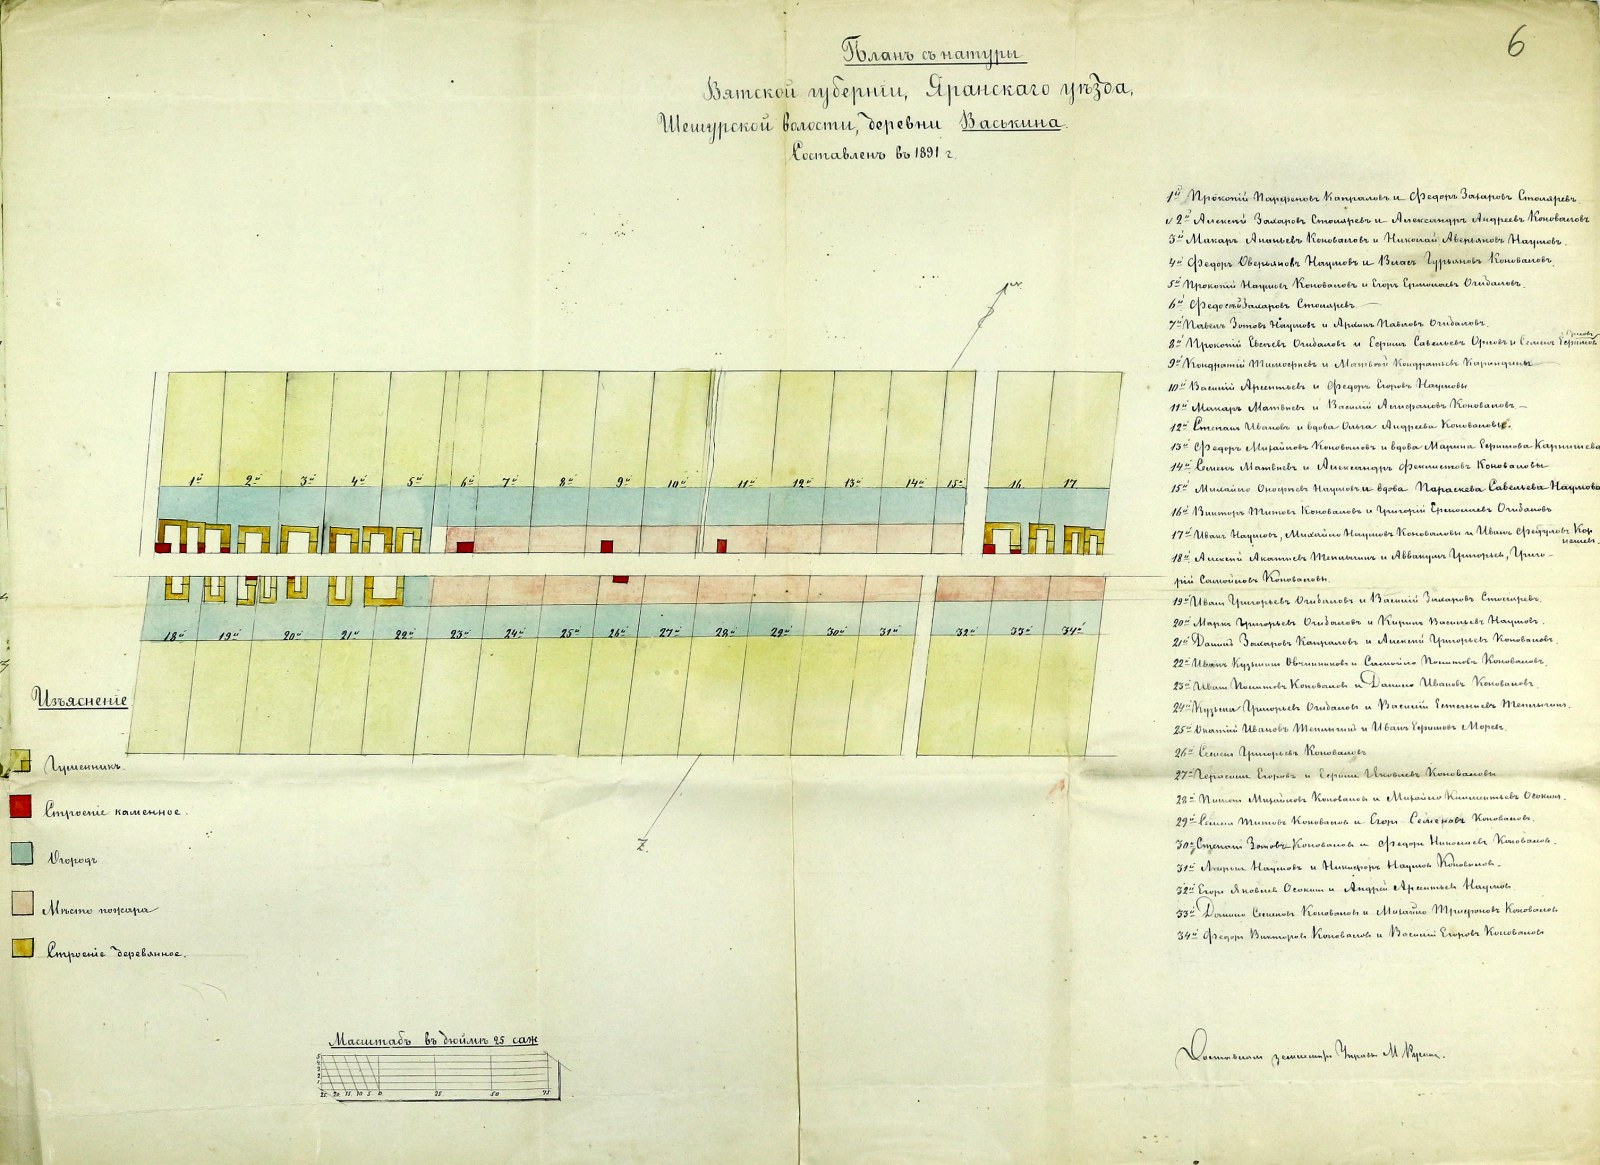 6
Планъ съ натуры
Вятской губерніи, Яранскаго уѣзда,
Шешурской волости, деревни Васькина.
Составленъ въ 1891 г.
1й Прокопій Парфеновъ Капраловъ и Федоръ Захаровъ Столяревъ
2й Алексѣй Захаровъ Столяревъ и Александръ Андреевъ Коноваловъ
3й Макаръ Ананьевъ Коноваловъ и Николай Аверьяновъ Наумовъ.
4й Федоръ Оверьяновъ Наумовъ и Власъ Гурьяновъ Коноваловъ.
5й Прокопій Наумовъ Коноваловъ и Егоръ Ермолаевъ Огибаловъ.
6й Федосѣй Захаровъ Столяревъ.
7й Павелъ Зотовъ Наумовъ и Архипъ Павловъ Огибаловъ.
8й Прокопій Евсѣевъ Огибаловъ и Ефимъ Савельевъ Орловъ и Семенъ Ефимовъ
9й Кондратій Тимофѣевъ и Матвѣй Кондратьевъ
10й Василій Арсентьевъ и Федоръ Егоровъ Наумовы
11й Макаръ Матвѣевъ и Василій Коноваловъ.
12й Степанъ Ивановъ и вдова Ольга Андреева Коноваловы.
13й Федоръ Михайловъ Коноваловъ и вдова Марина Ефимова
14й Семенъ Матвѣевъ и Александръ Феклистовъ Коноваловы
15й Михайло Онофрѣевъ Наумовъ и вдова Параскева Савельева Наумова
16й Викторъ Титовъ Коноваловъ и Григорій Ермолаевъ Огибаловъ
17й Иванъ Наумовъ, Михайло Наумовъ Коноваловы и Иванъ Кор-
18й Алексѣй Теплыгинъ и Аввакумъ Григорьевъ, Григо-
рій Самойловъ Коноваловы.
19й Иванъ Григорьевъ Огибаловъ и Василій Захаровъ Столяревъ.
20й Маркъ Григорьевъ Огибаловъ и Кирилъ Васильевъ Наумовъ.
21й Данилъ Захаровъ Капраловъ и Алексѣй Григорьевъ Коноваловъ.
22й Иванъ Кузьминъ Овчинниковъ и Самойло Коноваловъ.
23й Иванъ Коноваловъ и Данило Ивановъ Коноваловъ.
24й Кузьма Григорьевъ Огибаловъ и Василій Теплыгинъ.
25й Ивановъ Теплыгинъ и Иванъ Ефимовъ Моревъ.
26й Семенъ Григорьевъ Коноваловъ
27й Герасимъ Егоровъ и Ефимъ Яковлевъ Коноваловы
28й Михайловъ Коноваловъ и Михайло Климентьевъ Осокинъ.
29й Семенъ Титовъ Коноваловъ и Егоръ Семеновъ Коноваловъ.
30й Степанъ Зотовъ Коноваловъ и Федоръ Николаевъ Коноваловъ.
31й Наумовъ и Никифоръ Наумовъ Коноваловъ.
32й Егоръ Яковлевъ Осокинъ и Андрѣй Арсентьевъ Наумовъ
33й Данило Семеновъ Коноваловъ и Михайло Трифоновъ Коноваловъ
34й Федоръ Викторовъ Коноваловъ и Василій Егоровъ Коноваловъ
1й 2й 3й 4й 5й 6й 7й 8й 9й 10й 11й 12й 13й 14й 15й 16 17
18й 19й 20й 21й 22й 23й 24й 25й 26й 27й 28й 29й 30й 31й 32й 33й 34й
Изъясненіе
Гуменникъ.
Строеніе каменное.
Огородъ
Мѣсто пожара
Строеніе деревянное.
Масштабъ въ дюймѣ 25 саж
25 20 15 10 5 0 25 50 75